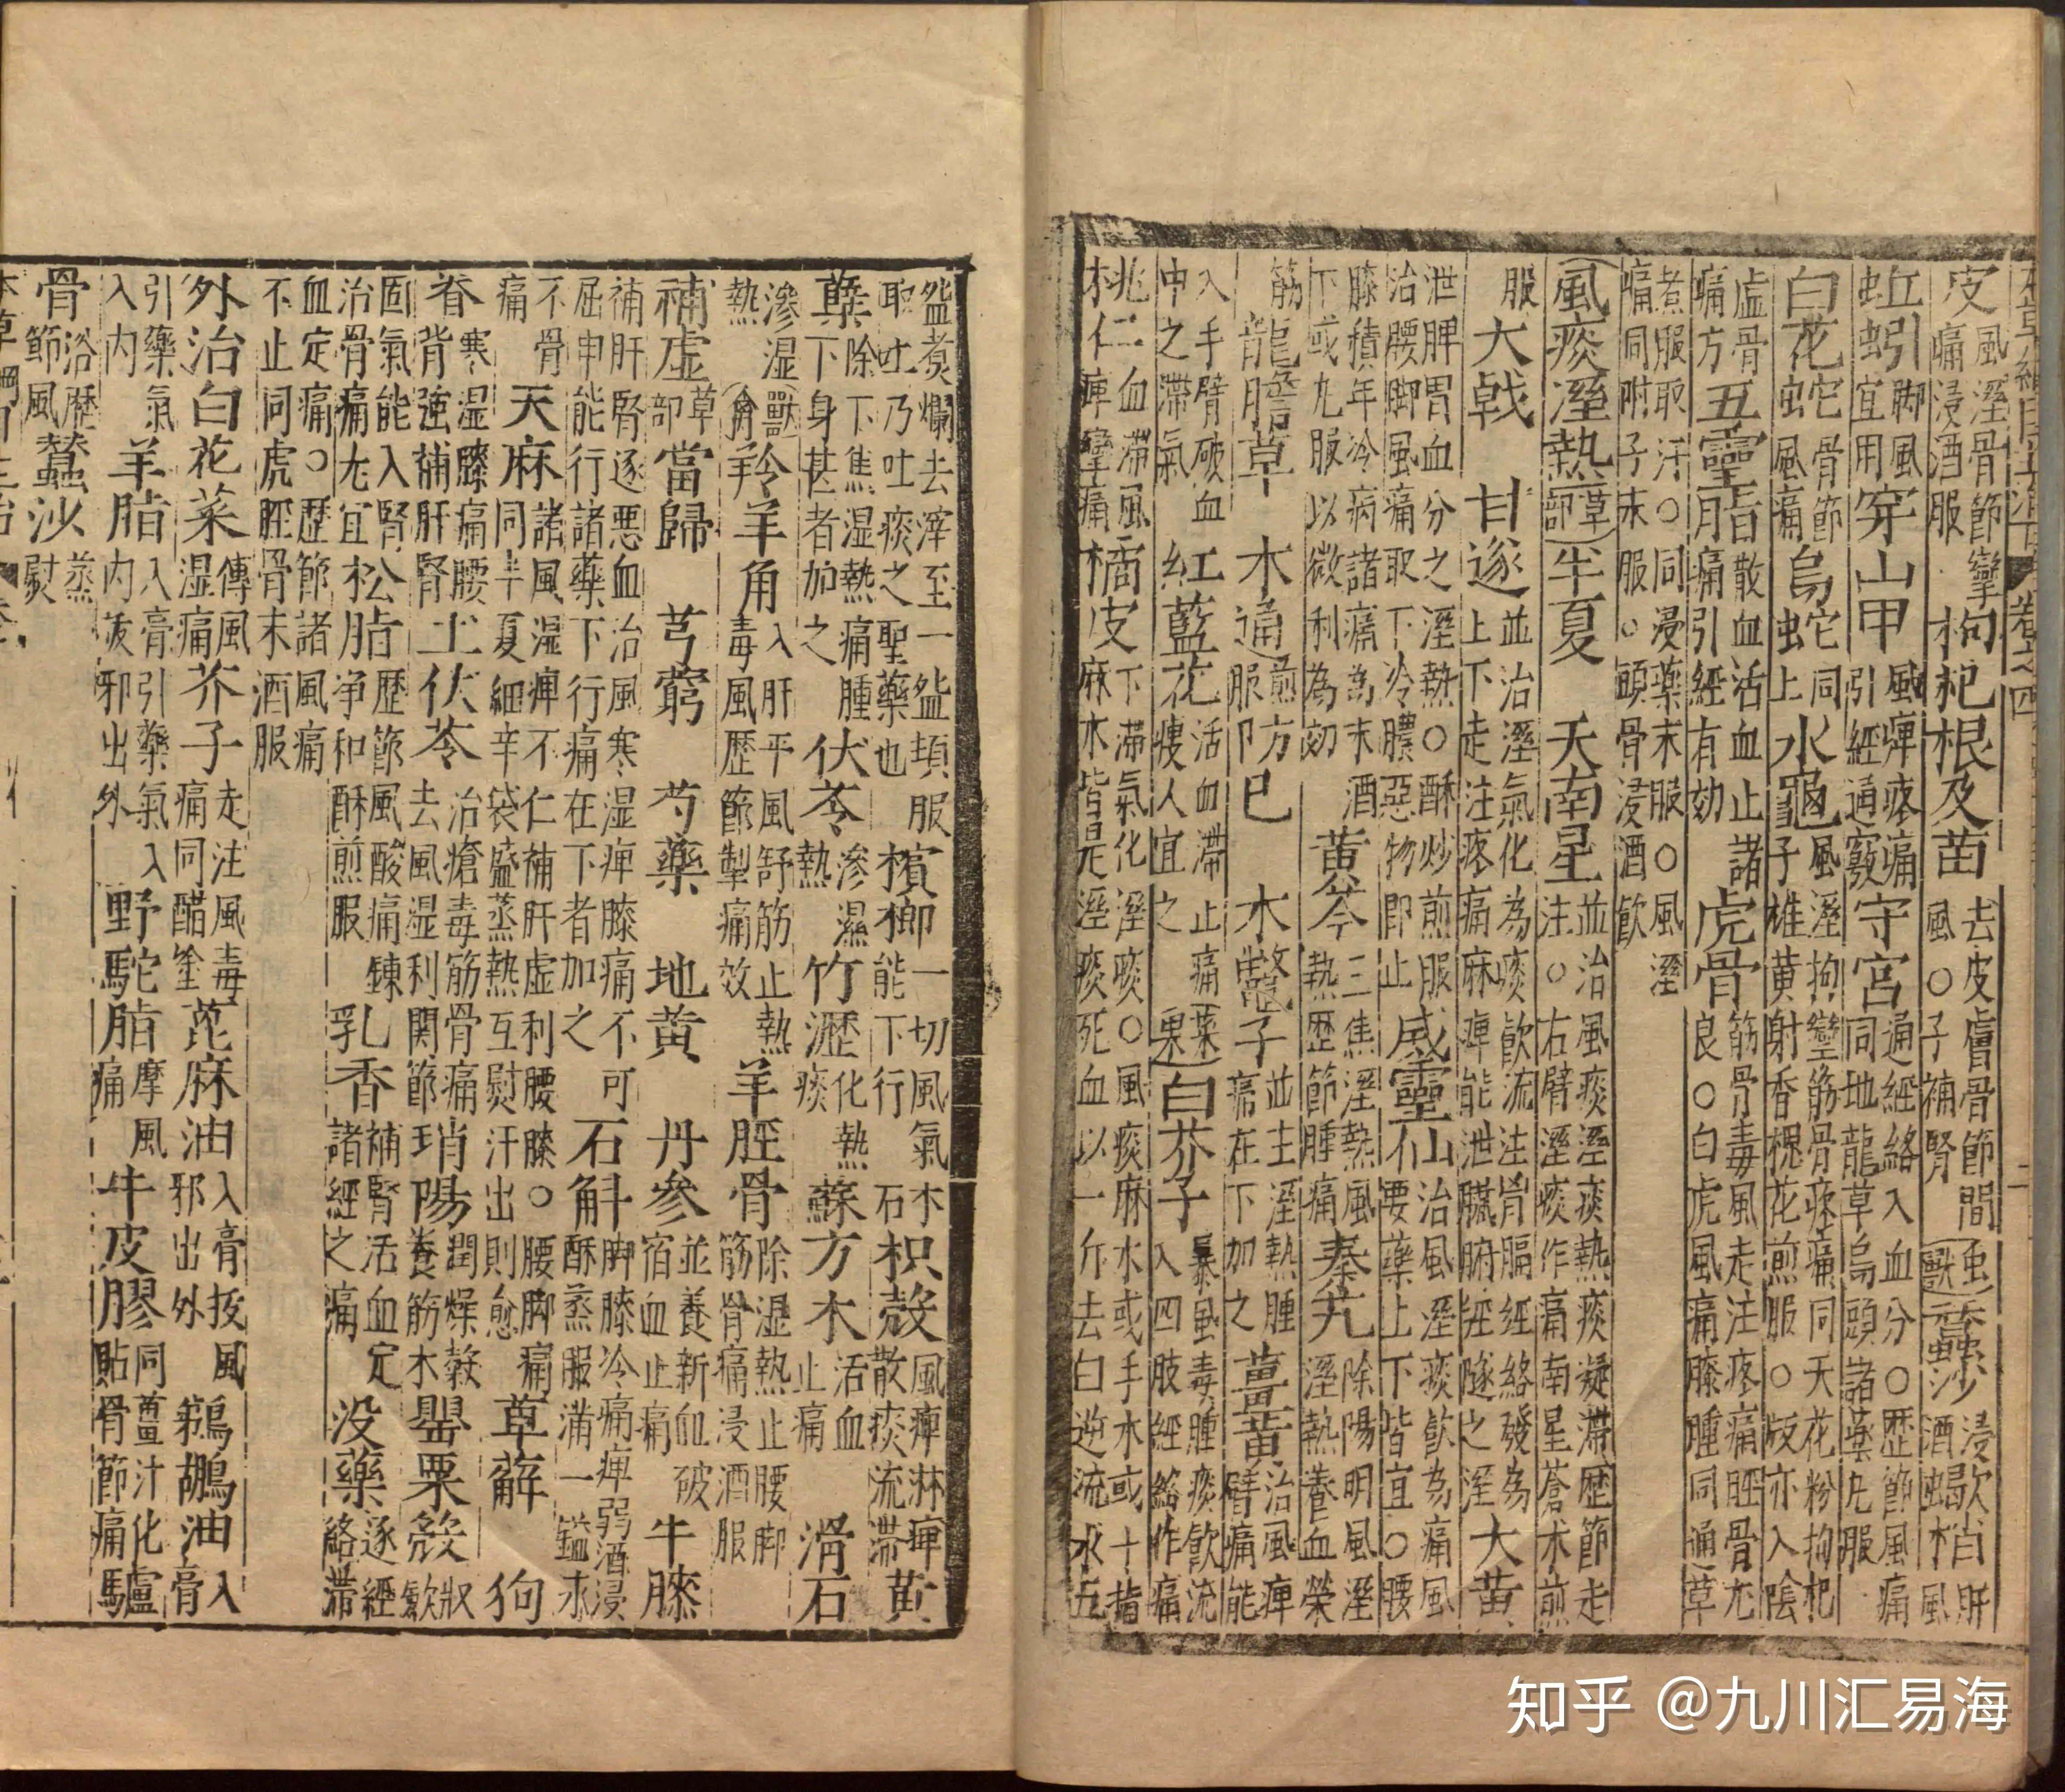 皮 風溼骨節攣痛浸酒服 枸杞根及苗 去皮膚骨節間風○子補腎 蟲獸 蠶沙 浸歠酒 蝎梢 肝風
蚯蚓 脚風宜用 穿山甲 風痺疼痛引經通竅 守宮 通經絡入血分○歷節風痛同地龍草烏頭諸藥丸服
白花蛇 骨節風痛 烏蛇 同上 水龜 風溼拘攣筋骨疼痛同天花粉枸杞子雄黄射香槐花煎服○版亦入陰
虛骨痛方 五靈脂 散血活血止諸痛引經有効 虎骨 筋骨毒風走注疼痛脛骨尤良○白虎風痛膝腫同通草
煮服取汗○同浸藥末服○風溼痛同附子末服○頭骨浸酒飲
風痰溼熱 草部 半夏 天南星 並治風痰溼痰熱痰凝滯歷節走注○右臂溼痰作痛南星蒼术煎
服 大戟 甘遂 並治溼氣化為痰飲流注胷膈經絡發為上下走注疼痛麻痺能泄臟腑經隧之溼 大黄
泄脾胃血分之溼熱○酥炒煎服治腰脚風痛取下冷膿惡物即止 威靈仙 治風溼痰飲為痛風要藥上下皆宜○腰
膝積年冷病諸痛為末酒下或丸服以微利為効 黄芩 三焦溼熱風熱歷節腫痛 秦艽 除陽明風溼溼熱養血榮
筋 龍膽草 木通 煎服 防已 木鼈子 並主溼熱腫痛在下加之 薑黄 治風痺臂痛能
入手臂破血中之滯氣 紅藍花 活血滯止痛瘦人宜之 菜果 白芥子 暴風毒腫痰飲流入四肢經絡作痛
桃仁 血滯風痺攣痛 橘皮 下滯氣化溼痰○風痰麻木或手木或十指麻木皆是溼痰死血以一斤去白逆流水五
盌煮爛去滓至一盌頓服取吐乃吐痰之聖藥也 檳榔 一切風氣能下行 木石 枳殻 風痺淋痺散痰流滯 黄
蘗 除下焦湿熱痛腫下身甚者加之 伏苓 滲濕熱 竹瀝 化熱痰 蘇方木 活血止痛 滑石
滲湿熱 獸禽 羚羊角 入肝平風舒筋止熱毒風歷節掣痛效 羊脛骨 除湿熱止腰脚筋骨痛浸酒服
補虛 草部 當歸 芎藭 芍藥 地黄 丹參 並養新血破宿血止痛 牛膝
補肝腎逐悪血治風寒湿痺膝痛不可屈申能行諸藥下行痛在下者加之 石斛 脚膝冷痛痺弱酒浸酥蒸服滿一鎰永
不骨痛 天麻 諸風湿痺不仁補肝虛利腰膝○腰脚痛同半夏細辛袋盛蒸熱互熨汗出則愈 萆薢 狗
脊 寒湿膝痛腰背強補肝腎 土伏苓 治瘡毒筋骨痛去風湿利関節 瑣陽 潤燥養筋 木穀 罌粟殻 収歛
固氣能入腎治骨痛尤宜 松脂 歷節風酸痛錬净和酥煎服 乳香 補腎活血定諸經之痛 没藥 逐經絡滯
血定痛○歷節諸風痛不止同虎脛骨末酒服
外治 白花菜 傅風湿痛 芥子 走注風毒痛同醋塗 萞麻油 入膏抜風邪出外 鵜鶘油 入膏
引藥氣入内 羊脂 入膏引藥氣入内㧞邪出外 野駝脂 摩風痛 牛皮膠 同薑汁化貼骨節痛 驢
骨 浴歷節風 蠶沙 蒸熨
知乎 @九川汇易海